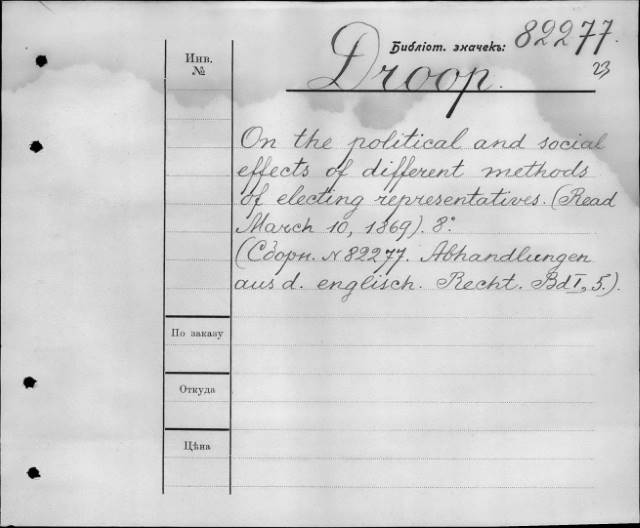 Библiот. значекъ: 82277.
23
Инв.
№
Droop.
On the political and social
effects of different methods
of electing representatives. (Read
March 10, 1869). 8°
(Сборн. N 82277. Abhandlungen
aus d. englisch. Recht. Bd I, 5.).
По заказу
Откуда
Цѣна